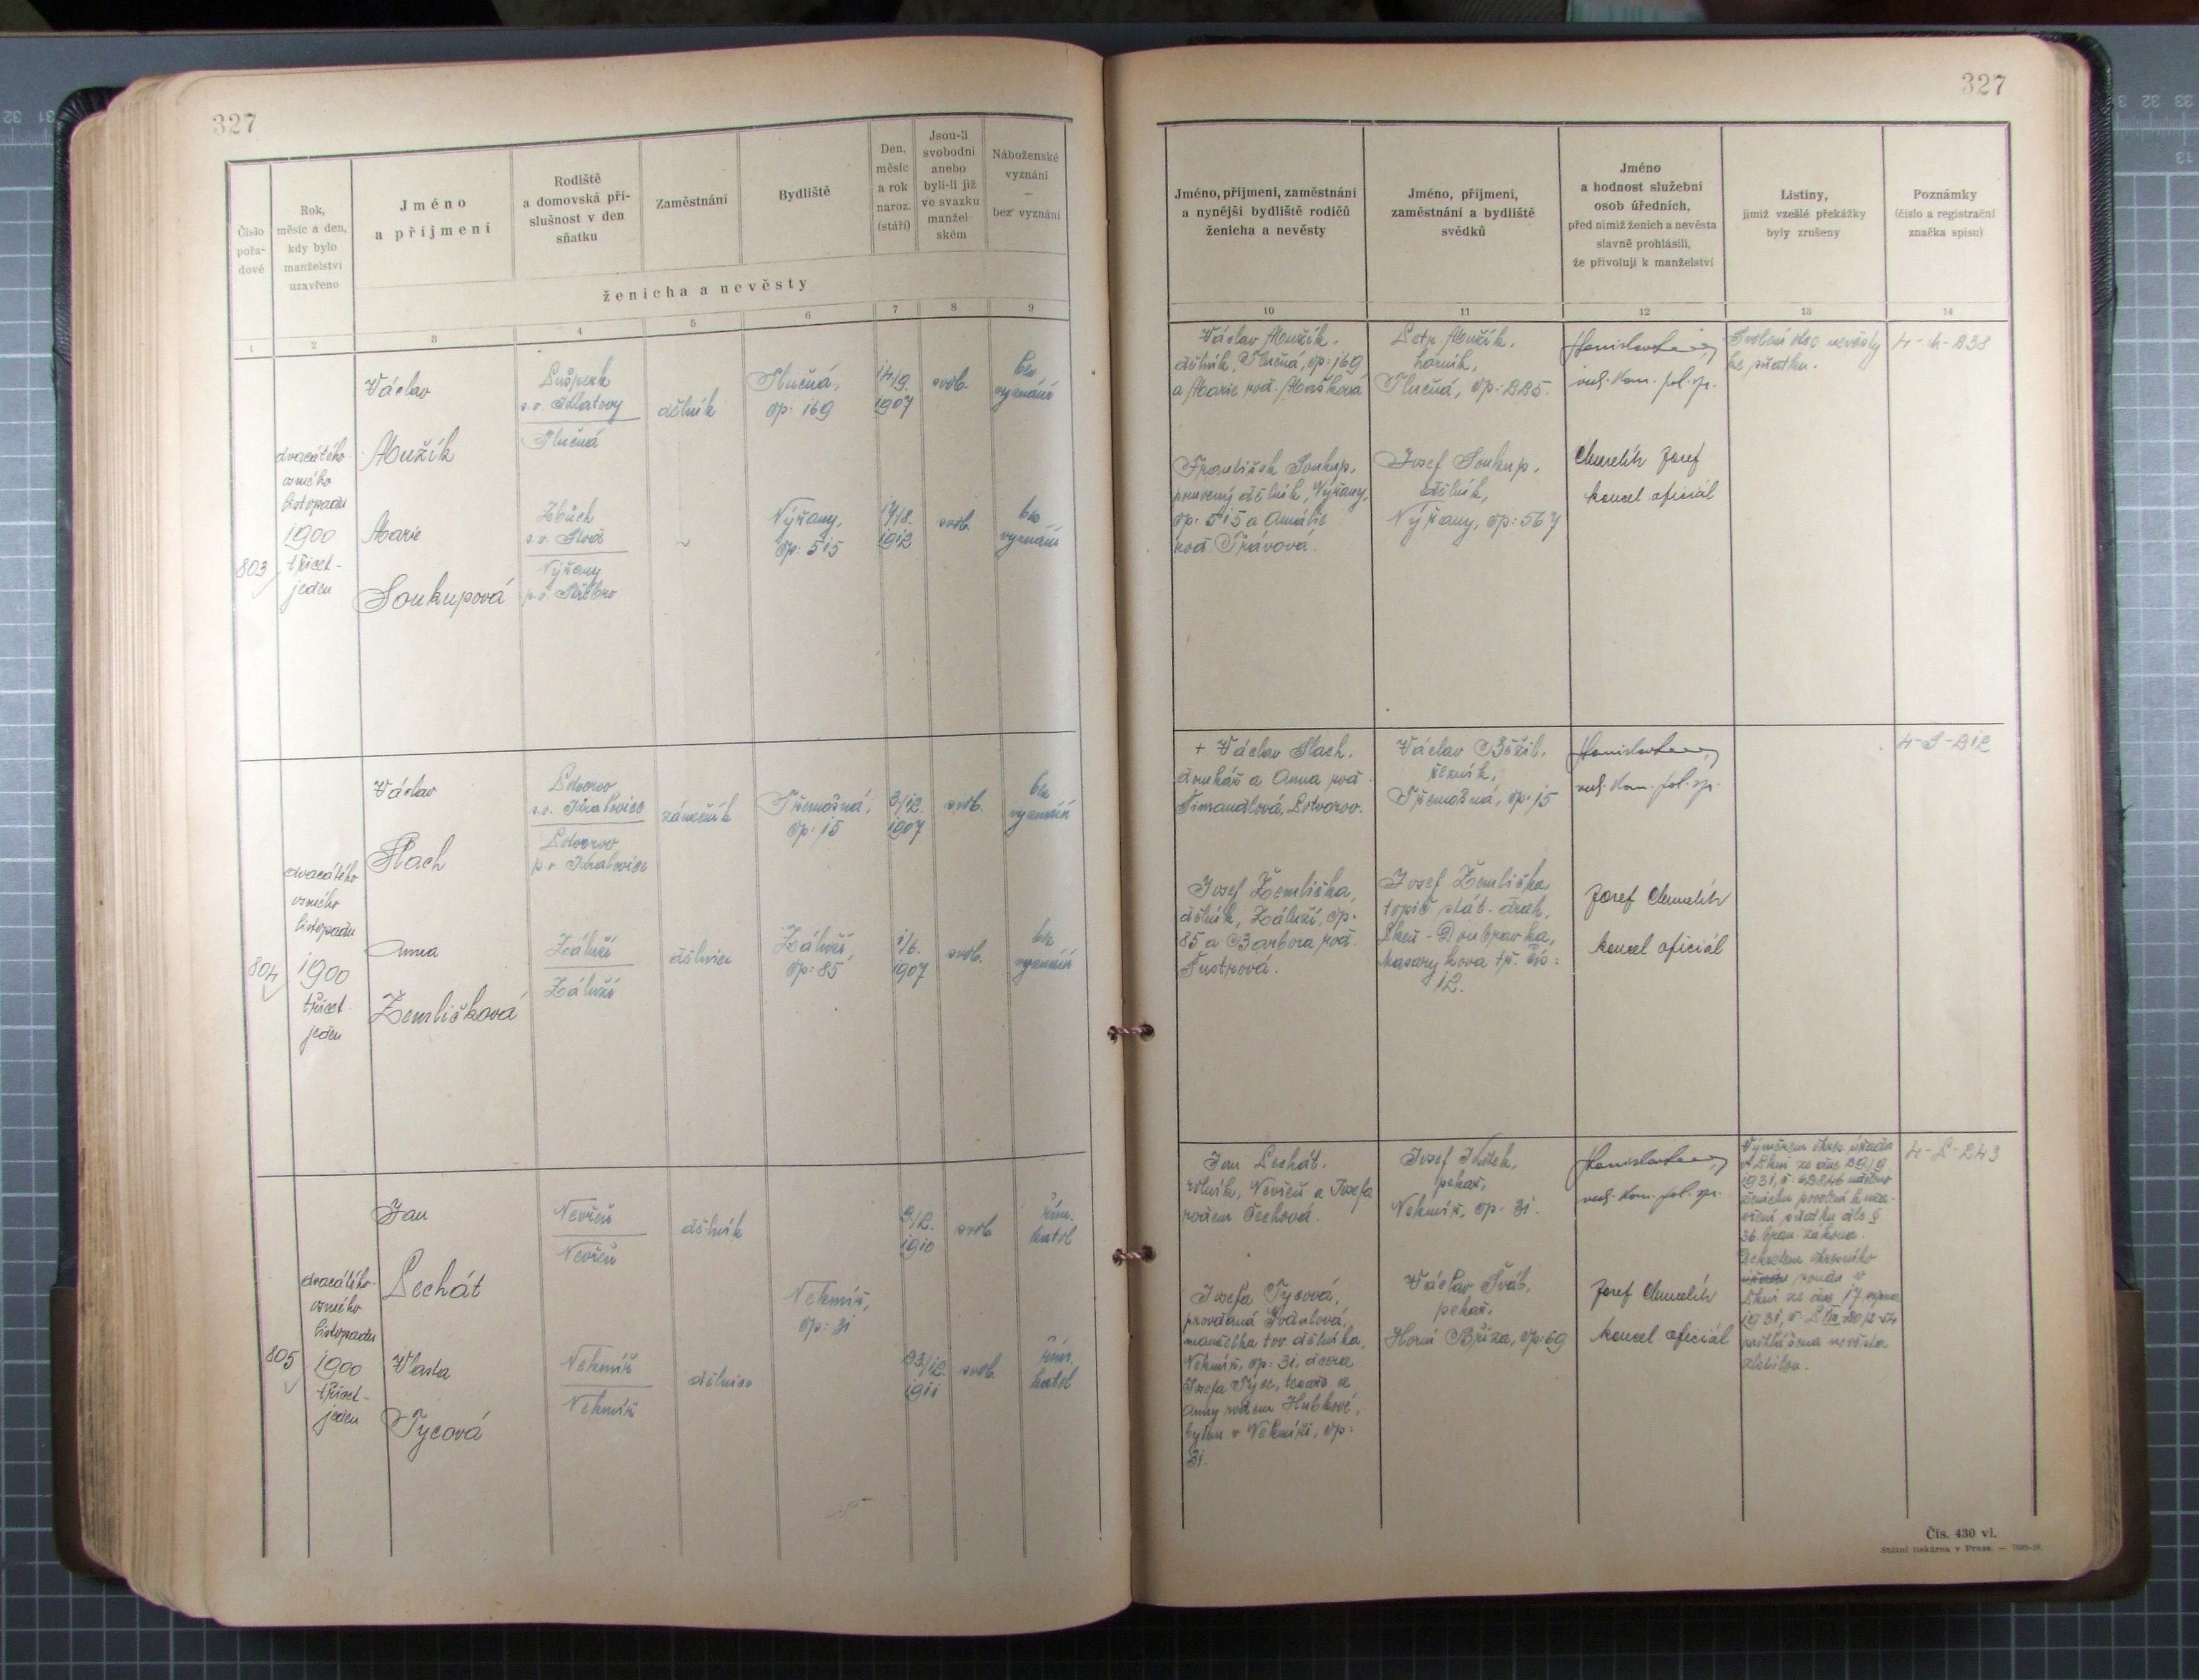 327
Číslo
pořa-
dové
Rok,
měsíc a den,
kdy bylo
manželství
uzavřeno
Jméno
a příjmení
Rodiště
a domovská pří-
slušnost v den
sňatku
Zaměstnání
Bydliště
Den,
měsíc
a rok
naroz.
(stáří)
Jsou-li
svobodni
anebo
byli-li již
ve svazku
manžel-
ském
Náboženské
vyznání
—
bez vyznání
ženicha a nevěsty
1 2 3 4 5 6 7 8 9
803
dvacátého
osmého
listopadu
1900
třicet-
jeden
Václav
Mužík
s.o. Klatovy
Tlučná
dělník
Tlučná,
čp: 169
14/9.
1907
svob.
bez
vyznání
Marie
Soukupová
Zbůch
Nýřany
p.o. Stříbro
~
Nýřany,
čp: 515
1912
svob.
bez
vyznání
804
dvacátého
osmého
listopadu
1900
třicet-
jeden
Václav
Plach
s.o. Kralovice
p.o. Kralovice
zámečník
Třemošná,
čp: 15
3/12.
1907
svob.
bez
vyznání
Anna
Žemličková
Záluží
Záluží
dělnice
Záluží,
čp: 85
1/6.
1907
svob.
bez
vyznání
805
dvacátého
osmého
listopadu
1900
třicet-
jeden
Jan
Lechát
Nevřeň
Nevřeň
dělník
3/2.
1910
svob.
řím.
katol
Nekmíř,
čp: 31
Vlasta
Tycová
Nekmíř
Nekmíř
dělnice
23/12.
1911
svob.
řím.
katol
327
Jméno, příjmení, zaměstnání
a nynější bydliště rodičů
ženicha a nevěsty
Jméno, příjmení,
zaměstnání a bydliště
svědků
Jméno
a hodnost služební
osob úředních,
před nimiž ženich a nevěsta
slavně prohlásili,
že přivolují k manželství
Listiny,
jimiž vzešlé překážky
byly zrušeny
Poznámky
(číslo a registrační
značka spisu)
10 11 12 13 14
Václav Mužík.
dělník, Tlučná, čp: 169
a Marie roz. Mašková
František Soukup,
dělník, Nýřany,
čp: 515 a Amálie
roz. Trávová.
Petr Mužík.
horník,
Tlučná, čp: 225.
Josef Soukup,
dělník,
Nýřany, čp: 567
rad. kom. pol. sp.
Chmelík Josef
kancel oficiál
Svolení otce nevěsty
ke sňatku.
4-M-238
+ Václav Plach.
a Anna roz.
Josef Žemlička,
dělník, Záluží, čp:
85 a Barbora roz.
Šustrová.
Václav
řezník,
Třemošná, čp: 15
Josef Žemlička
topič stát. drah,
Plzeň - Doubravka,
Masarykova tř. čís:
12.
rad. kom. pol. sp.
Josef Chmelík
kancel oficiál
Jan Lechát.
rolník, Nevřeň a Josefa
rodem Čechová.
Josefa Tycová,
provdaná
manželka tov. dělníka,
Nekmíř, čp: 31, dcera
Josefa Tyce, a
Anny rodem Hubkové,
bytem v Nekmíři, čp:
31.
Josef
pekař,
Nekmíř, čp: 31.
Václav Šváb,
pekař.
Horní Bříza, čp: 69
rad. kom. pol. sp.
Josef Chmelík
kancel oficiál
Výměrem okres. úřadu
v Plzni ze dne 29/9.
1931, č: uděleno
ženichu povolení k uza-
vření sňatku dle §
36. bran. zákona.
Dekretem okresního
soudu v
Plzni ze dne 17. srpna
prohlášena nevěsta
zletilou.
4-L-243
Čís. 430 vl.
Státní tiskárna v Praze.